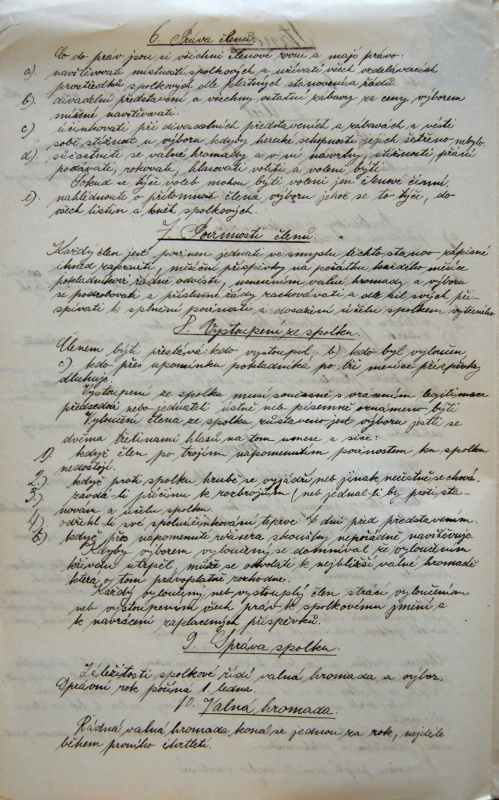 6. Práva členů.
Co do práv jsou si všichni členové rovni a mají právo:
a). navštěvovati místnosti spolkových a užívati všech vzdělávacích
prostředků spolkových dle platných stanovení a řádů.
b). divadelní představení a všechny ostatní zábavy za ceny výborem
snížené navštěvovati.
c). účinkovati při divadelních představeních a zábavách a vésti
sobě stížnost u výboru, kdyby herecké schopnosti jejich šetřeno nebylo.
d). súčastniti se valné hromady a v ní návrhy, stížnosti přání
podávati, rokovati, hlasovati voliti a voleni býti.
Pokud se týče voleb mohou býti voleni jen členové činní.
e). nahlédnouti v přítomnost člena výboru jehož se to týče, do
všech listin a knih spolkových.
7. Povinnosti členů.
Každý člen jest povinen jednati ve smyslu těchto stanov zápisné
ihned zapraviti, měsíční příspěvky na počátku každého měsíce
pokladníkovi řádně odvésti, usnesením valné hromady a výboru
se podrobovati a příslušné řády zachovávati a dle sil svých při-
spívati k splnění povinností a dosažení účelu spolkem vytčeného.
8. Vystoupení ze spolku.
Členem býti přestává: kdo vystoupil, b) kdo byl vyloučen
c) kdo přes upomínku pokladníka po tři měsíce příspěvky
dluhuje.
Vystoupení ze spolku musí současně s vrácením legitimace
předsedovi nebo jednateli ústně neb písemně oznámeno býti.
Vyloučení člena ze spolku zůstaveno jest výboru jestli se
dvěma třetinami hlasů na tom usnese a sice:
1. když člen po trojím napomenutí povinnostem ku spolku
nedostojí.
2.) když proti spolku hrubě se vyjádří neb jinak nečestně se chová.
3.) zavdá-li příčinu k rozbrojům (neb jednal-li by proti sta-
novám a účelu spolku
4). odřekl-li své spoluúčinkování teprve 4 dni před představením.
5). když přes napomenutí režisera zkoušky nepořádně navštěvuje.
Kdyby výborem vyloučený se domníval že vyloučením
křivdu utrpěl, může se odvolati k nejbližší valné hromadě
která o tom právoplatně rozhodne.
Každý vyloučený neb vystouplý člen ztrácí vyloučením
neb vystoupením všech práv k spolkovému jmění a
k navrácení zaplacených příspěvků.
9. Správa spolku.
Záležitosti spolkové řídí valná hromada a výbor.
Správní rok počíná 1. ledna.
10. Valná hromada.
Řádná valná hromada koná se jednou za rok, nejdéle
během prvního čtvrtletí.